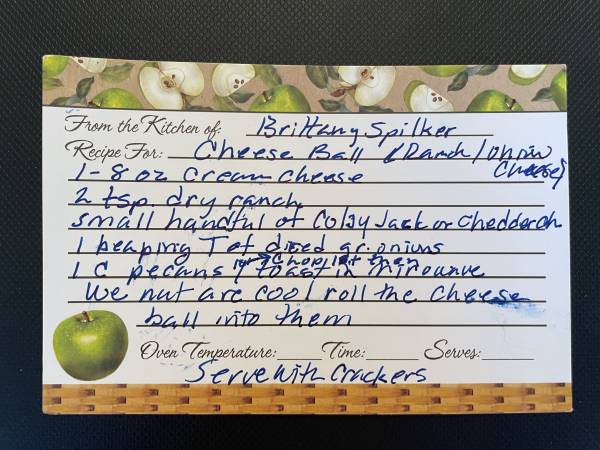 From the Kitchen of: Brittany Spilker
Recipe For: Cheese Ball (Ranch/onion
cheese)
1-8 oz cream cheese
2 tsp. dry ranch
small handful of Colby Jack or Chedder ch
1 heaping T of diced gr. onions
1st chop let then
1 C pecans / toast in microwave
We nut are cool roll the cheese
ball into them
Oven Temperature: Time: Serves:
Serve with Crackers